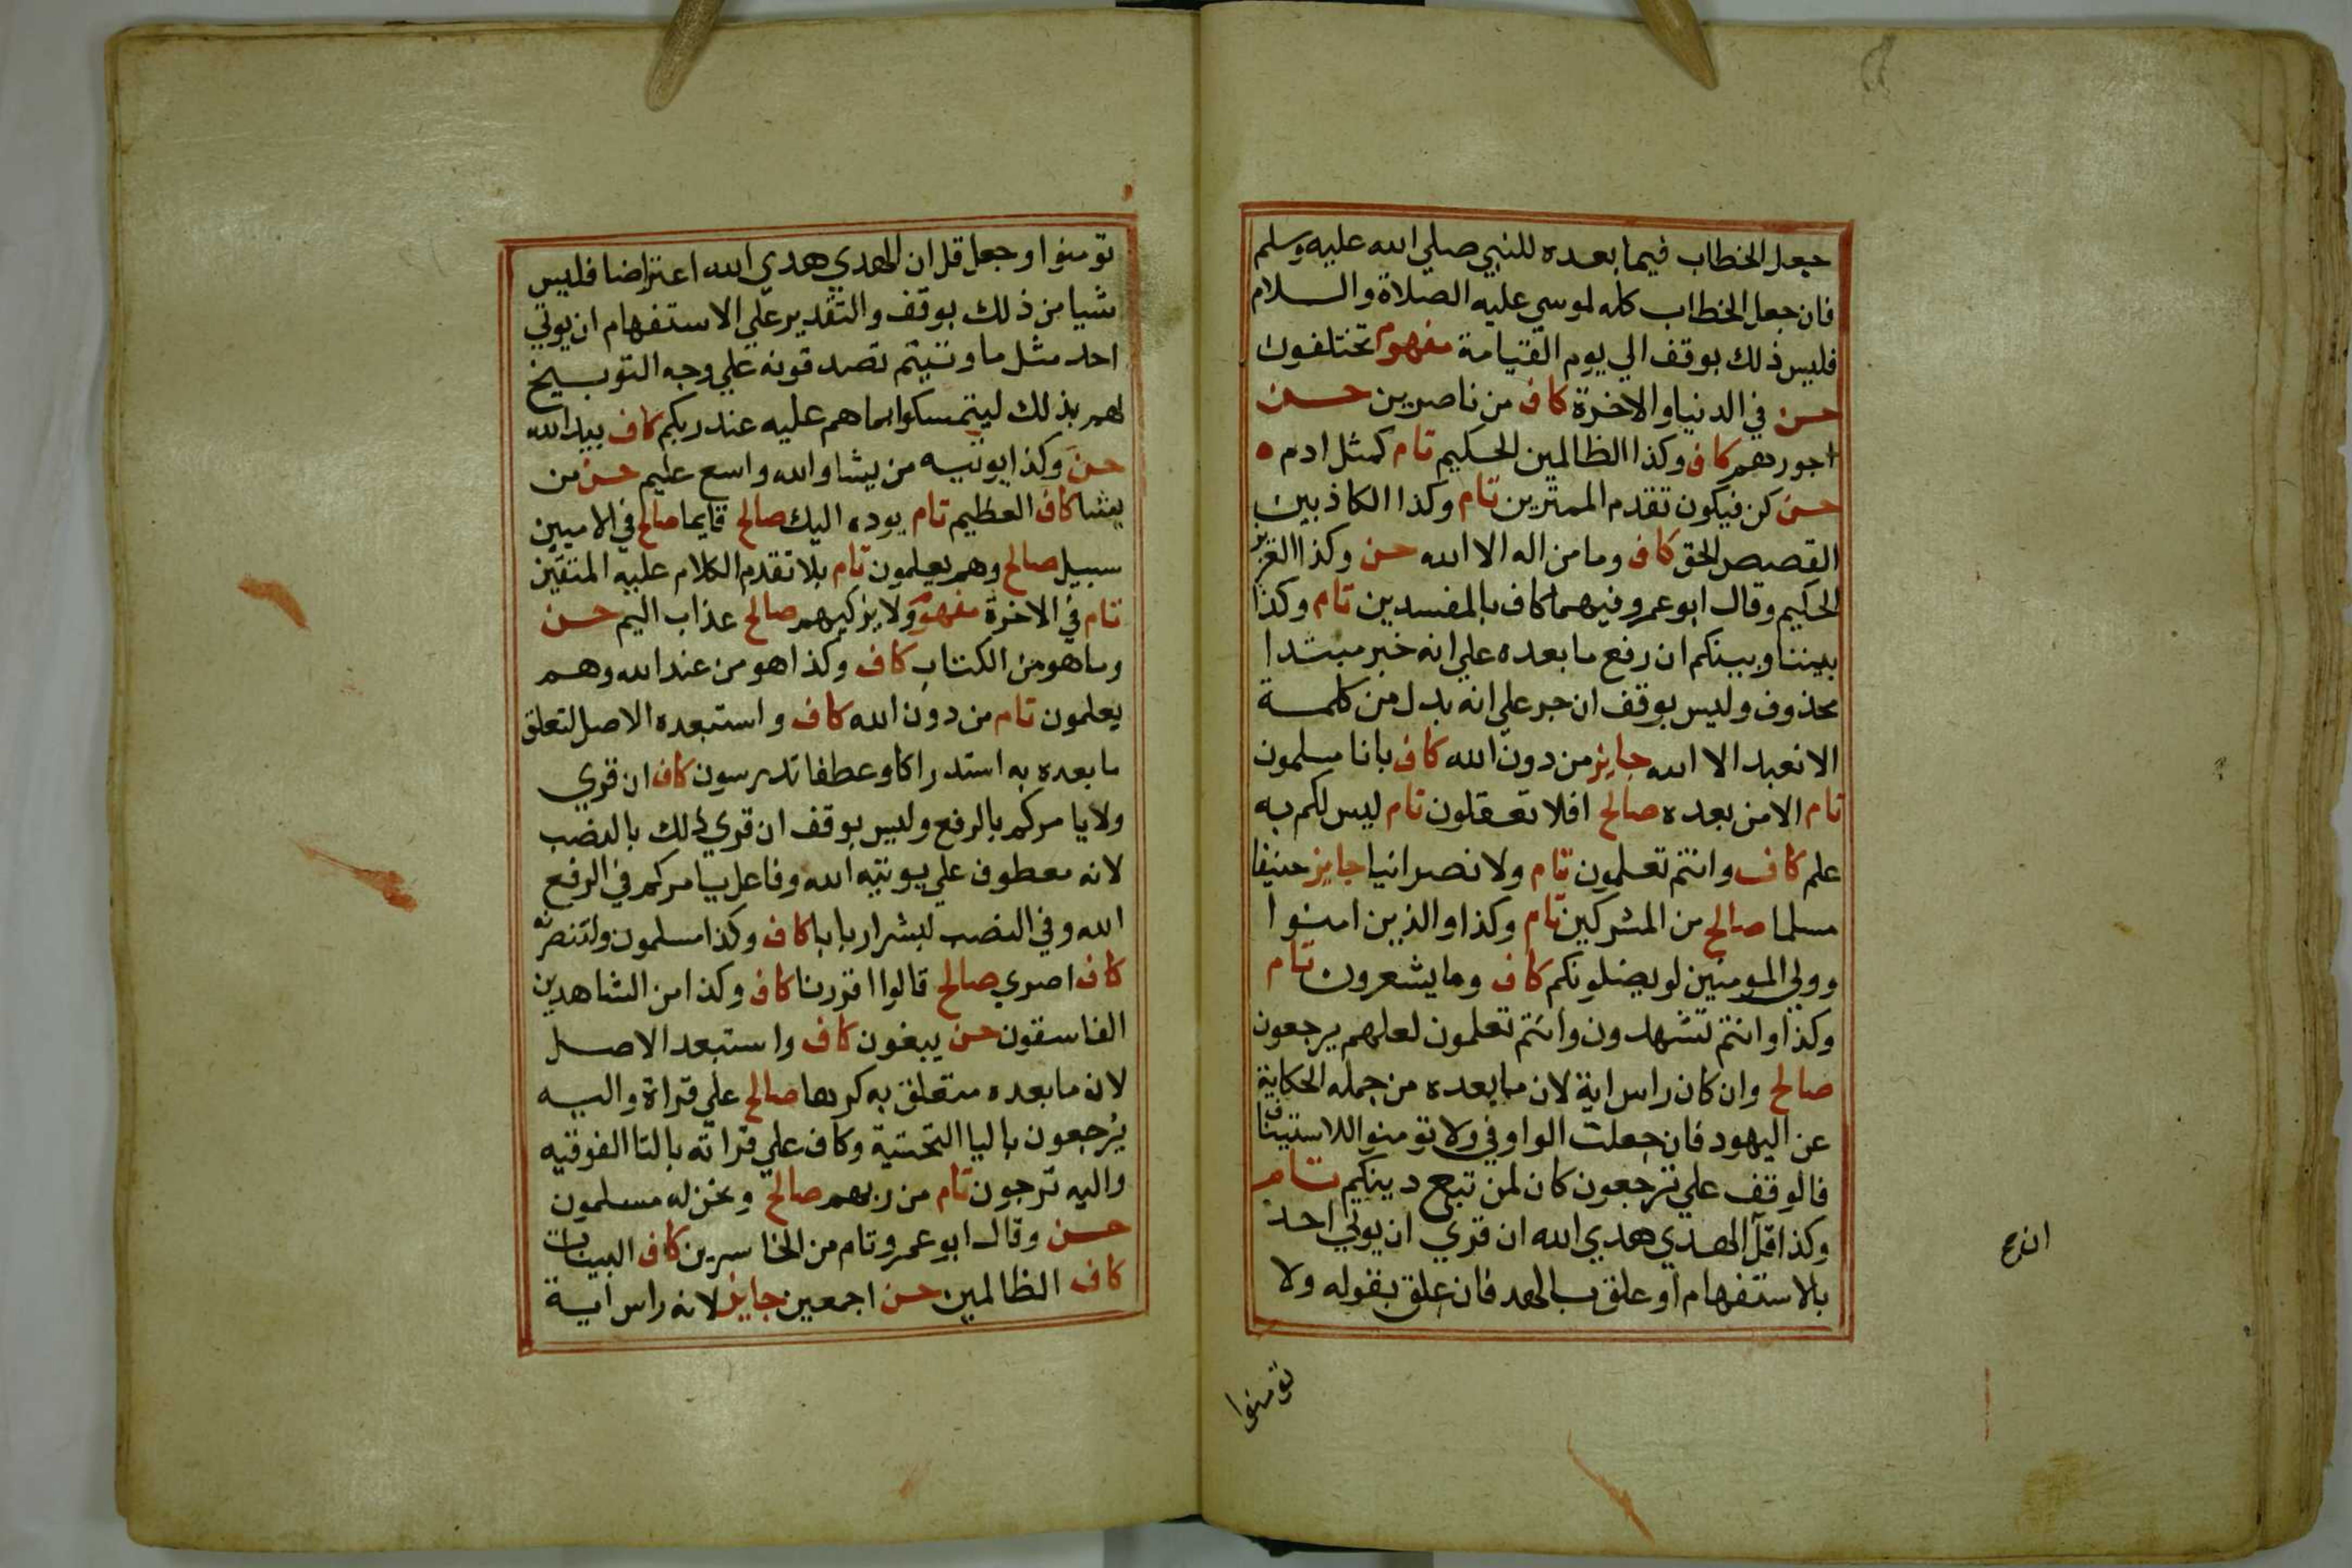 جعل الخطاب فيما بعده للنبي صلي الله عليه وسلم
فان جعل الخطاب كله لموسي عليه الصلاة والسلام
فليس ذلك بوقف الي يوم القيامة مفهوم تختلفون
حسن في الدنيا والاخرة كاف من ناصرين حسن
اجورهم كاف وكذا الظالمين الحكيم تام كمثل ادم ه
حسن كن فيكون تقدم الممترين تام وكذا الكاذبين
القصص الحق كاف وما من اله الا الله حسن وكذا العزيز
الحكيم وقال ابو عمرو فيهما كاف بالمفسدين تام وكذا
بيننا وبينكم ان رفع ما بعده علي انه خبر مبتدا
محذوف وليس بوقف ان جر علي انه بدل من كلمة
الا نعبد الا الله جايز من دون الله كاف بانا مسلمون
تام الا من بعده صالح افلا تعقلون تام ليس لكم به
علم كاف وانتم تعلمون تام ولا نصرانيا جايز حنيفا
مسلما صالح من المشركين تام وكذا والذين امنوا
وولي المومنين لو يضلونكم كاف وما يشعرون تام
وكذا وانتم تشهدون وانتم تعلمون لعلهم يرجعون
صالح وان كان راس اية لان ما بعده من جمله الحكاية
عن اليهود فان جعلت الواو في ولا تومنوا للاستيناف
فالوقف علي ترجعون كان لمن تبع دينكم تام
وكذا قل الهدي هدي الله ان قري ان يوتي احد
بالاستفهام او علق بالهد فان علق بقوله ولا
تومنوا
تومنوا وجعل قل ان الهدي هدي الله اعتراضا فليس
شيا من ذلك بوقف والتقدير علي الاستفهام ان يوتي
احد مثل ما وتيتم تصدقونه علي وجه التوبيخ
لهم بذلك ليتمسكوا بما هم عليه عند ربكم كاف بيد الله
حسن وكذا يوتيه من يشا والله واسع عليم حسن من
يشا كاف العظيم تام يوده اليك صالح قايما صالح في الاميين
سبيل صالح وهم يعلمون تام بلا تقدم الكلام عليه المتقين
تام في الاخرة مفهوم ولا يزكيهم صالح عذاب اليم حسن
وما هو من الكتاب كاف وكذا هو من عند الله وهم
يعلمون تام من دون الله كاف واستبعده الاصل لتعلق
ما بعده به استدراكا وعطفا تدرسون كاف ان قري
ولا يامركم بالرفع وليس بوقف ان قري ذلك بالنصب
لانه معطوف علي يوتيه الله وفاعل يامركم في الرفع
الله وفي النصب لبشر اربابا كاف وكذا مسلمون ولتنصرنه
كاف اصري صالح قالوا اقررنا كاف وكذا من الشاهدين
الفاسقون حسن يبغون كاف واستبعد الاصل
لان ما بعده متعلق به كرها صالح علي قراة واليه
يرجعون باليا التحتية وكاف علي قراته بالتا الفوقيه
واليه ترجون تام من ربهم صالح ونحن له مسلمون
حسن وقال ابو عمرو تام من الخاسرين كاف البينات
كاف الظالمين حسن اجمعين جايز لانه راس اية